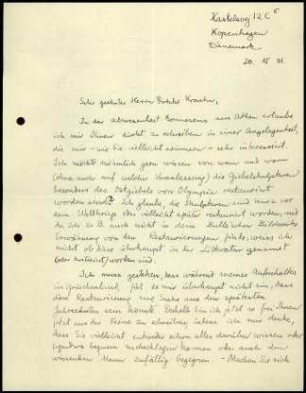 Kastelsvej 12 C
Kopenhagen
Dänemark
20. VI
Sehr geehrter Herr Doktor
In der Abwesenheit aus Athen erlaube
ich mir Ihnen direkt zu schreiben in einer Angelegenheit,
die mir wie Sie vielleicht erinnern sehr interessiert.
Ich möchte nämlich gern wissen von wem und wann
(wenn auch auf welcher Veranlassung) die Giebelskulpturen
besonders des Ostgiebels von Olympia restauriert
worden sind? Ich glaube, die Skulpturen sind nur vor
dem Weltkrieg vielleicht später restauriert worden, und
da ich z. B. auch nicht in dem
Erwähnung von den Restaurierungen finde, weiss ich
nicht ob dies überhaupt in der Litteratur genannt
(oder notiert) worden sind.
Ich muss gestehen, dass während meines Aufenthaltes
in Griechenland, fiel es mir überhaupt nicht ein, dass
diese Restaurierung eine Sache aus den späteren
Jahrzehnten sein könnte. Deshalb bin ich jetzt so frei Ihnen
jetzt aus der Ferne zu schreiben, indem ich mir denke,
dass Sie vielleicht entweder schon alles darüber wissen oder
irgendwo bequem nachschlagen können oder auch dem
Mann zufällig begegnen. - Machen Sie sich